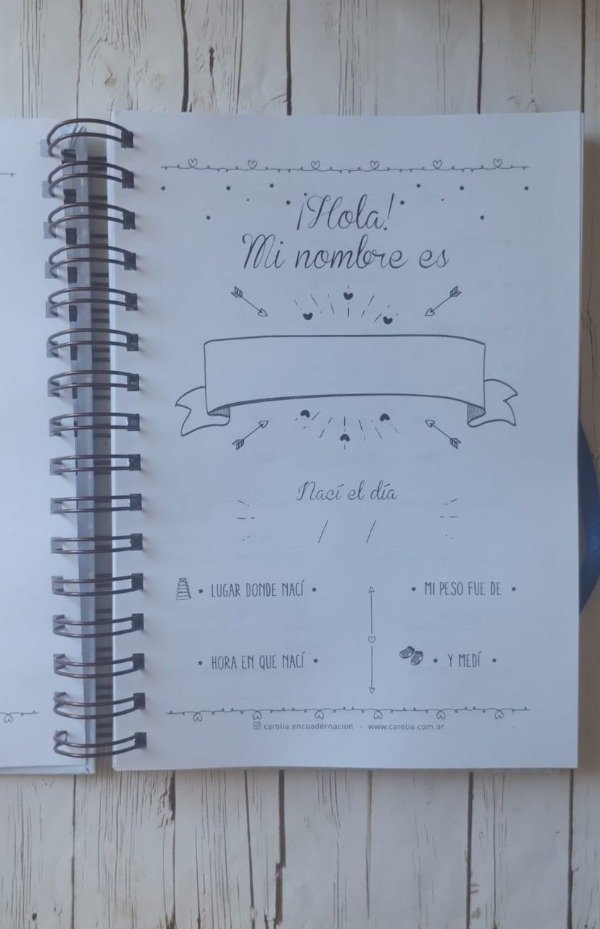 ¡Hola!
Mi nombre es
Nací el día
/ /
LUGAR DONDE NACÍ
MI PESO FUE DE
HORA EN QUE NACÍ
Y MEDÍ
carolia.encuadernacion - www.carolia.com.ar